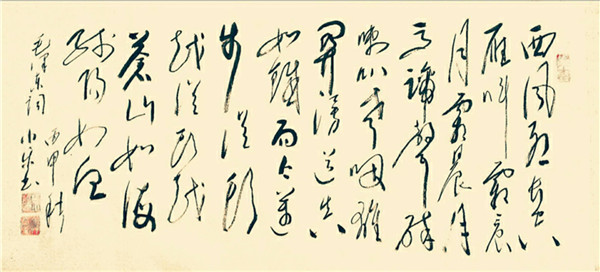 西風烈長空
雁叫霜晨
月霜晨月
馬蹄聲碎
喇叭聲咽雄
關漫道真
如鐵而今邁
步從頭
越從頭越
蒼山如海
殘陽如血
毛澤東詞
丙申秋